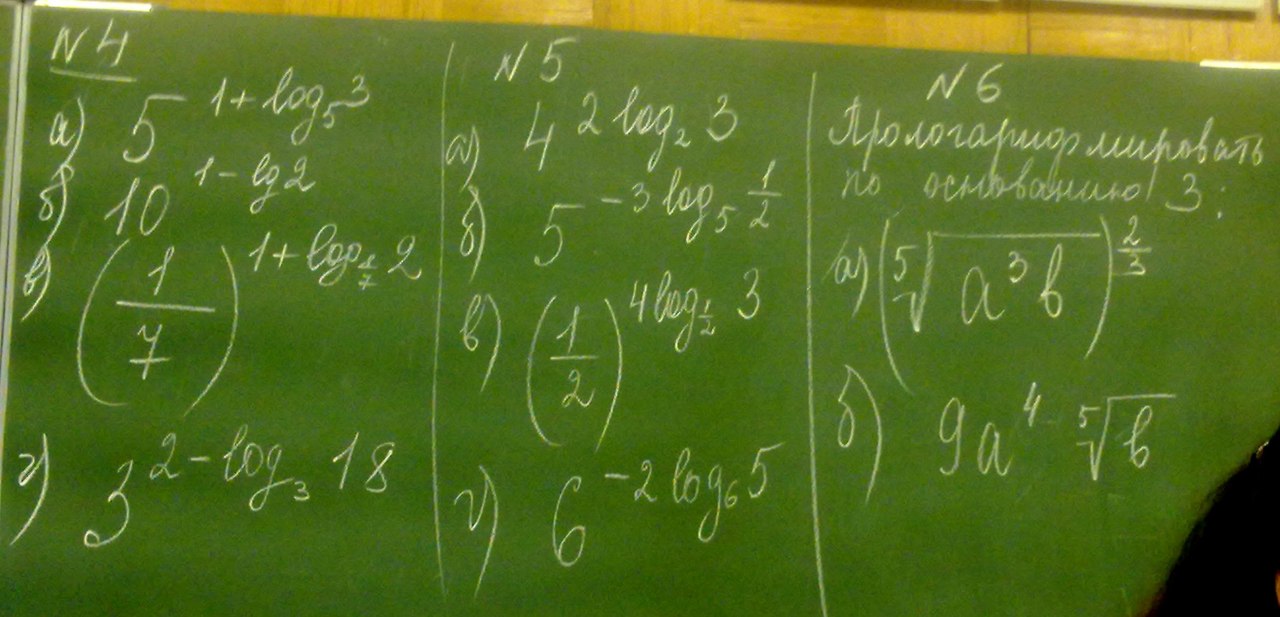 N 4
а) 5^{1+log_5 3}
б) 10^{1-lg2}
в) (1/7)^{1+log_{1/7} 2}
г) 3^{2-log_3 18}
N 5
а) 4^{2 log_2 3}
б) 5^{-3 log_5 1/2}
в) (1/2)^{4log_{1/2} 3}
г) 6^{-2 log_6 5}
N 6
Прологарифмировать
по основанию 3:
а) (⁵√(a³b))^{2/3}
б) 9a⁴ ⁵√b